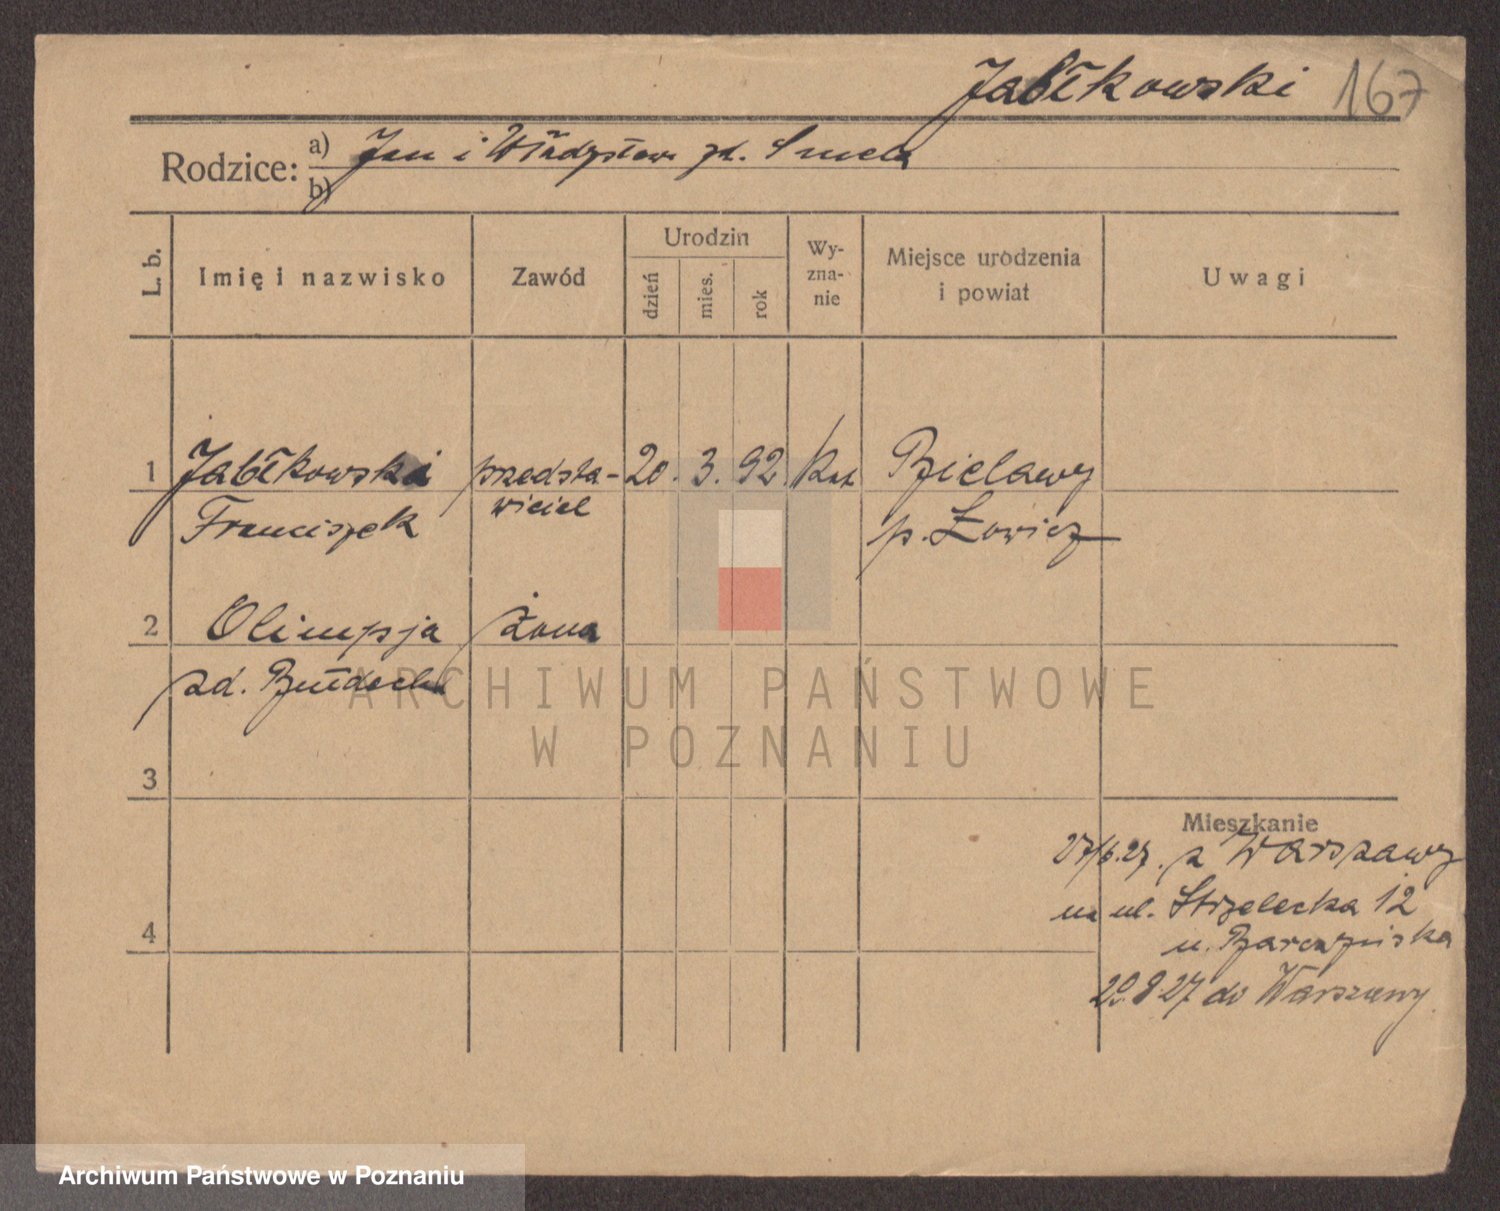 Jabłkowski 167
Rodzice: a) Jan i Władysława zd. Smela
b)
L. b. Imię i nazwisko Zawód Urodzin dzień mies. rok Wy-zna-nie Miejsce urodzenia i powiat Uwagi
1 Jabłkowski przedsta- 20. 3. 92 Kat Bielawy
Franciszek wiciel p. Łowicz
2 Olimpja żona
zd.
ARCHIWUM PAŃSTWOWE
W POZNANIU
3
Mieszkanie
27/6.27. z Warszawy
na ul. Strzelecka 12
4
u.
20.8.27 do Warszawy
Archiwum Państwowe w Poznaniu